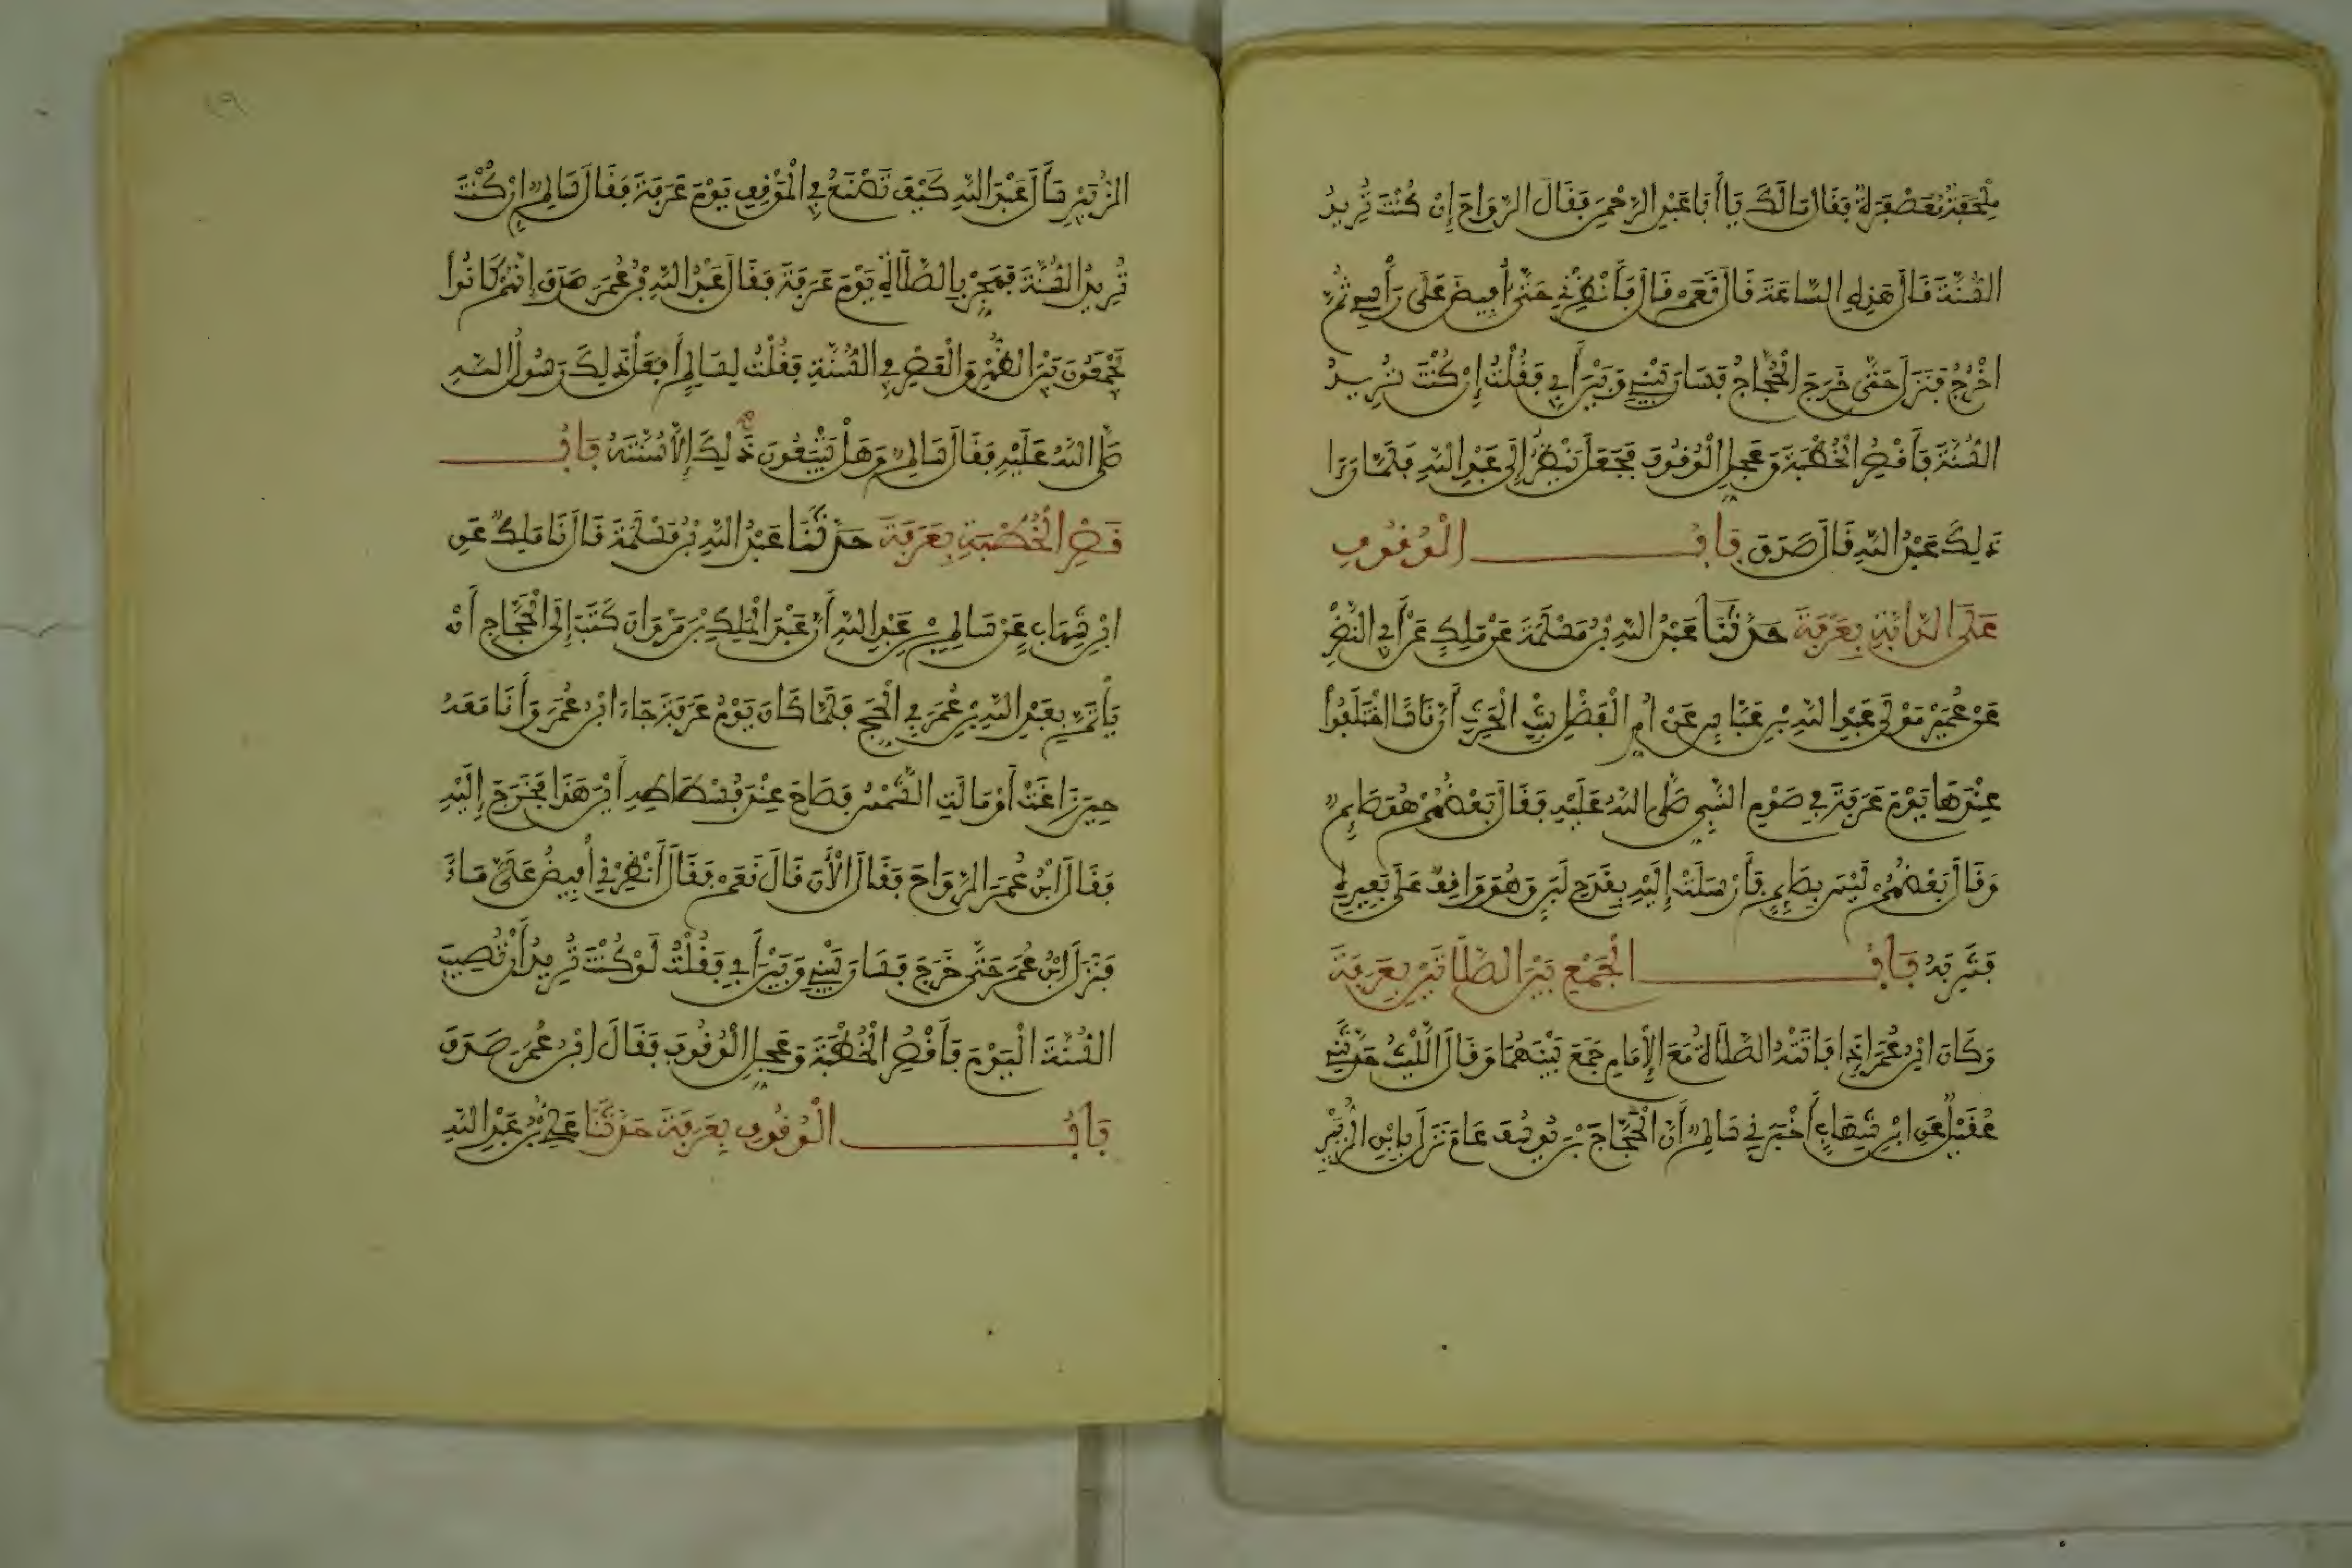 مِلْحَفَةٌ مُعَصْفَرَةٌ فَقَالَ مَا لَكَ يَا أَبَا عَبْدِ الرَّحْمَنِ فَقَالَ الرَّوَاحَ إِنْ كُنْتَ تُرِيدُ
السُّنَّةَ قَالَ هَذِهِ السَّاعَةَ قَالَ نَعَمْ قَالَ فَأَنْظِرْنِي حَتَّى أُفِيضَ عَلَى رَأْسِي ثُمَّ
اخْرُجُ فَنَزَلَ حَتَّى خَرَجَ الْحَجَّاجُ فَسَارَ بَيْنِي وَبَيْنَ أَبِي فَقُلْتُ إِنْ كُنْتَ تُرِيدُ
السُّنَّةَ فَأَقْصِرِ الْخُطْبَةَ وَعَجِّلِ الْوُقُوفَ فَجَعَلَ يَنْظُرُ إِلَى عَبْدِ اللَّهِ فَلَمَّا رَءَا
ذَلِكَ عَبْدُ اللَّهِ قَالَ صَدَقَ بَابُ الْوُقُوفِ
عَلَى الدَّابَّةِ بِعَرَفَةَ حَدَّثَنَا عَبْدُ اللَّهِ بْنُ مَسْلَمَةَ عَنْ مَلِكٍ عَنْ أَبِي النَّضْرِ
عَنْ عُمَيْرٍ مَوْلَى عَبْدِ اللَّهِ بْنِ عَبَّاسٍ عَنْ أُمِّ الْفَضْلِ بِنْتِ الْحَرِثِ أَنَّ نَاسًا اخْتَلَفُوا
عِنْدَهَا يَوْمَ عَرَفَةَ فِي صَوْمِ النَّبِيِّ صَلَّى اللَّهُ عَلَيْهِ فَقَالَ بَعْضُهُمْ هُوَ صَائِمٌ
وَقَالَ بَعْضُهُمْ لَيْسَ بِصَائِمٍ فَأَرْسَلَتْ إِلَيْهِ بِقَدَحِ لَبَنٍ وَهُوَ وَاقِفٌ عَلَى بَعِيرِهِ
فَشَرِبَهُ بَابُ الْجَمْعِ بَيْنَ الصَّلَاتَيْنِ بِعَرَفَةَ
وَكَانَ ابْنُ عُمَرَ إِذَا فَاتَتْهُ الصَّلَاةُ مَعَ الْإِمَامِ جَمَعَ بَيْنَهُمَا وَقَالَ اللَّيْثُ حَدَّثَنِي
عُقَيْلٌ عَنِ ابْنِ شِهَابٍ أَخْبَرَنِي سَالِمٌ أَنَّ الْحَجَّاجَ بْنَ يُوسُفَ عَامَ نَزَلَ بِابْنِ الزُّبَيْرِ
الزُّبَيْرِ سَأَلَ عَبْدَ اللَّهِ كَيْفَ تَصْنَعُ فِي الْمَوْقِفِ يَوْمَ عَرَفَةَ فَقَالَ سَالِمٌ إِنْ كُنْتَ
تُرِيدُ السُّنَّةَ فَهَجِّرْ بِالصَّلَاةِ يَوْمَ عَرَفَةَ فَقَالَ عَبْدُ اللَّهِ بْنُ عُمَرَ صَدَقَ إِنَّهُمْ كَانُوا
يَجْمَعُونَ بَيْنَ الظُّهْرِ وَالْعَصْرِ فِي السُّنَّةِ فَقُلْتُ لِسَالِمٍ أَفَعَلَ ذَلِكَ رَسُولُ اللَّهِ
صَلَّى اللَّهُ عَلَيْهِ فَقَالَ سَالِمٌ وَهَلْ يَتَّبِعُونَ ذَلِكَ إِلَّا سُنَّتَهُ بَابُ
قَصْرِ الْخُطْبَةِ بِعَرَفَةَ حَدَّثَنَا عَبْدُ اللَّهِ بْنُ مَسْلَمَةَ قَالَ نَا مَلِكٌ عَنِ
ابْنِ شِهَابٍ عَنْ سَالِمِ بْنِ عَبْدِ اللَّهِ أَنَّ عَبْدَ الْمَلِكِ بْنَ مَرْوَانَ كَتَبَ إِلَى الْحَجَّاجِ أَنْ
يَأْتَمَّ بِعَبْدِ اللَّهِ بْنِ عُمَرَ فِي الْحَجِّ فَلَمَّا كَانَ يَوْمُ عَرَفَةَ جَاءَ ابْنُ عُمَرَ وَأَنَا مَعَهُ
حِينَ زَاغَتْ أَوْ مَالَتِ الشَّمْسُ فَصَاحَ عِنْدَ فُسْطَاطِهِ أَيْنَ هَذَا فَخَرَجَ إِلَيْهِ
فَقَالَ ابْنُ عُمَرَ الرَّوَاحَ فَقَالَ الْأَنَ قَالَ نَعَمْ فَقَالَ أَنْظِرْنِي أُفِيضُ عَلَيَّ مَاءً
فَنَزَلَ ابْنُ عُمَرَ حَتَّى خَرَجَ فَسَارَ بَيْنِي وَبَيْنَ أَبِي فَقُلْتُ لَوْ كُنْتَ تُرِيدُ أَنْ تُصِيبَ
السُّنَّةَ الْيَوْمَ فَأَقْصِرِ الْخُطْبَةَ وَعَجِّلِ الْوُقُوفَ فَقَالَ ابْنُ عُمَرَ صَدَقَ
بَابُ الْوُقُوفِ بِعَرَفَةَ حَدَّثَنَا عَلِيُّ بْنُ عَبْدِ اللَّهِ